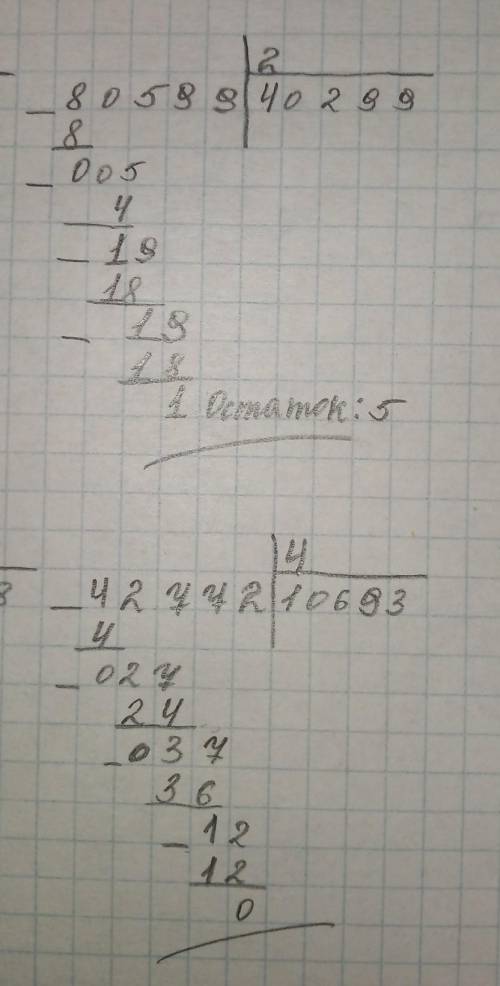 2
80599 40299
8
005
4
19
18
19
18
1 Остаток: 5
4
8 42772 10693
4
027
24
037
36
12
12
0